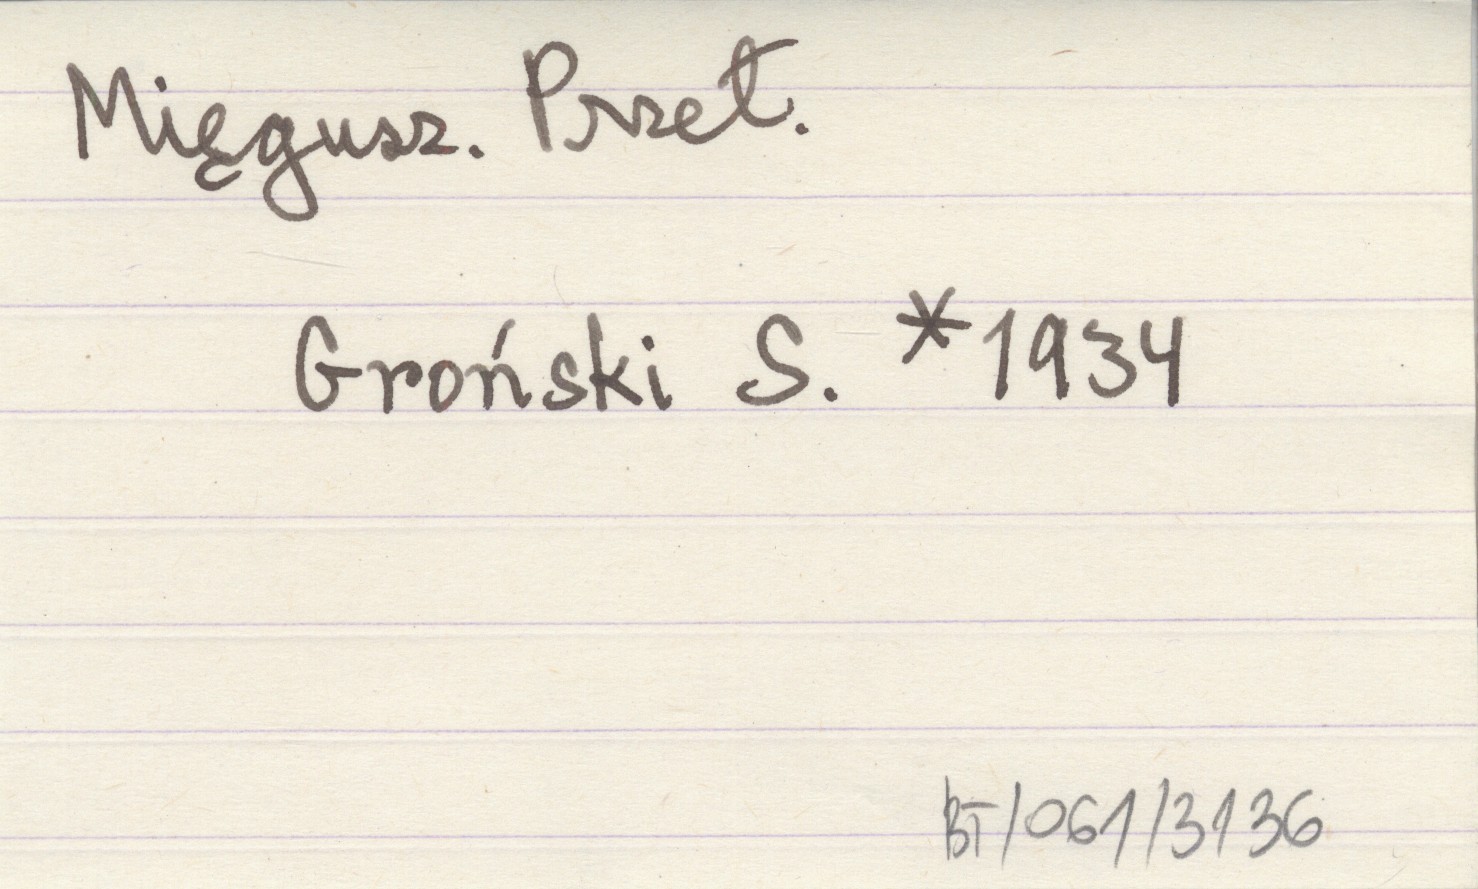 Mięgusz. Przeł.
Groński S. *1934
BT/061/3136